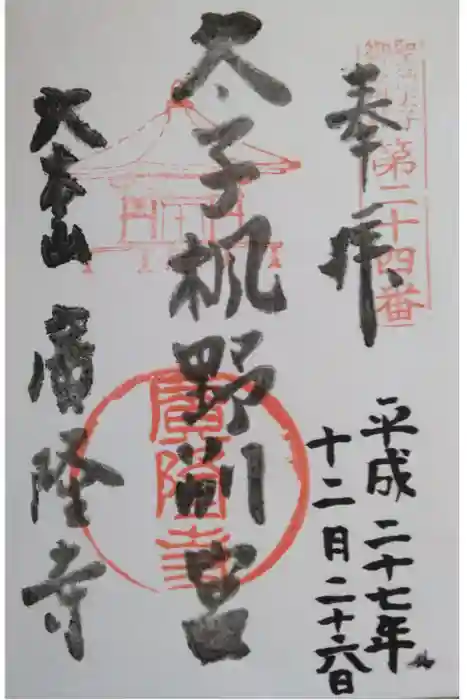 聖徳太子
御遺跡
第二十四番
奉拝
平成二十七年
十二月二十六日
太子楓野別宮
廣隆寺
大本山 廣隆寺